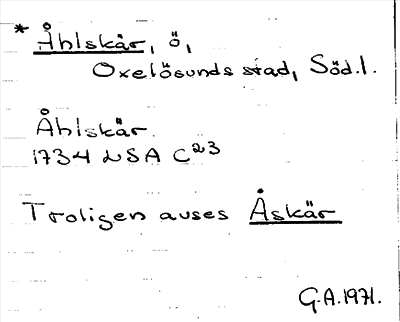 * Åhlskär, ö,
Oxelösunds stad, Söd.l.
Åhlskär.
1734 LSA C23
Troligen avses Åskär
G.A.1971.